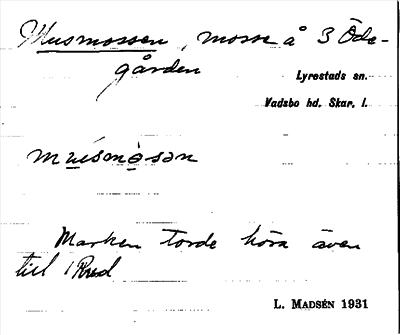 Musmossen, mosse å 3 Öde-
gården
Lyrestads sn.
Vadsbo hd. Skar. l.
Marken torde höra även
till 1 Rud
L. MADSÉN 1931